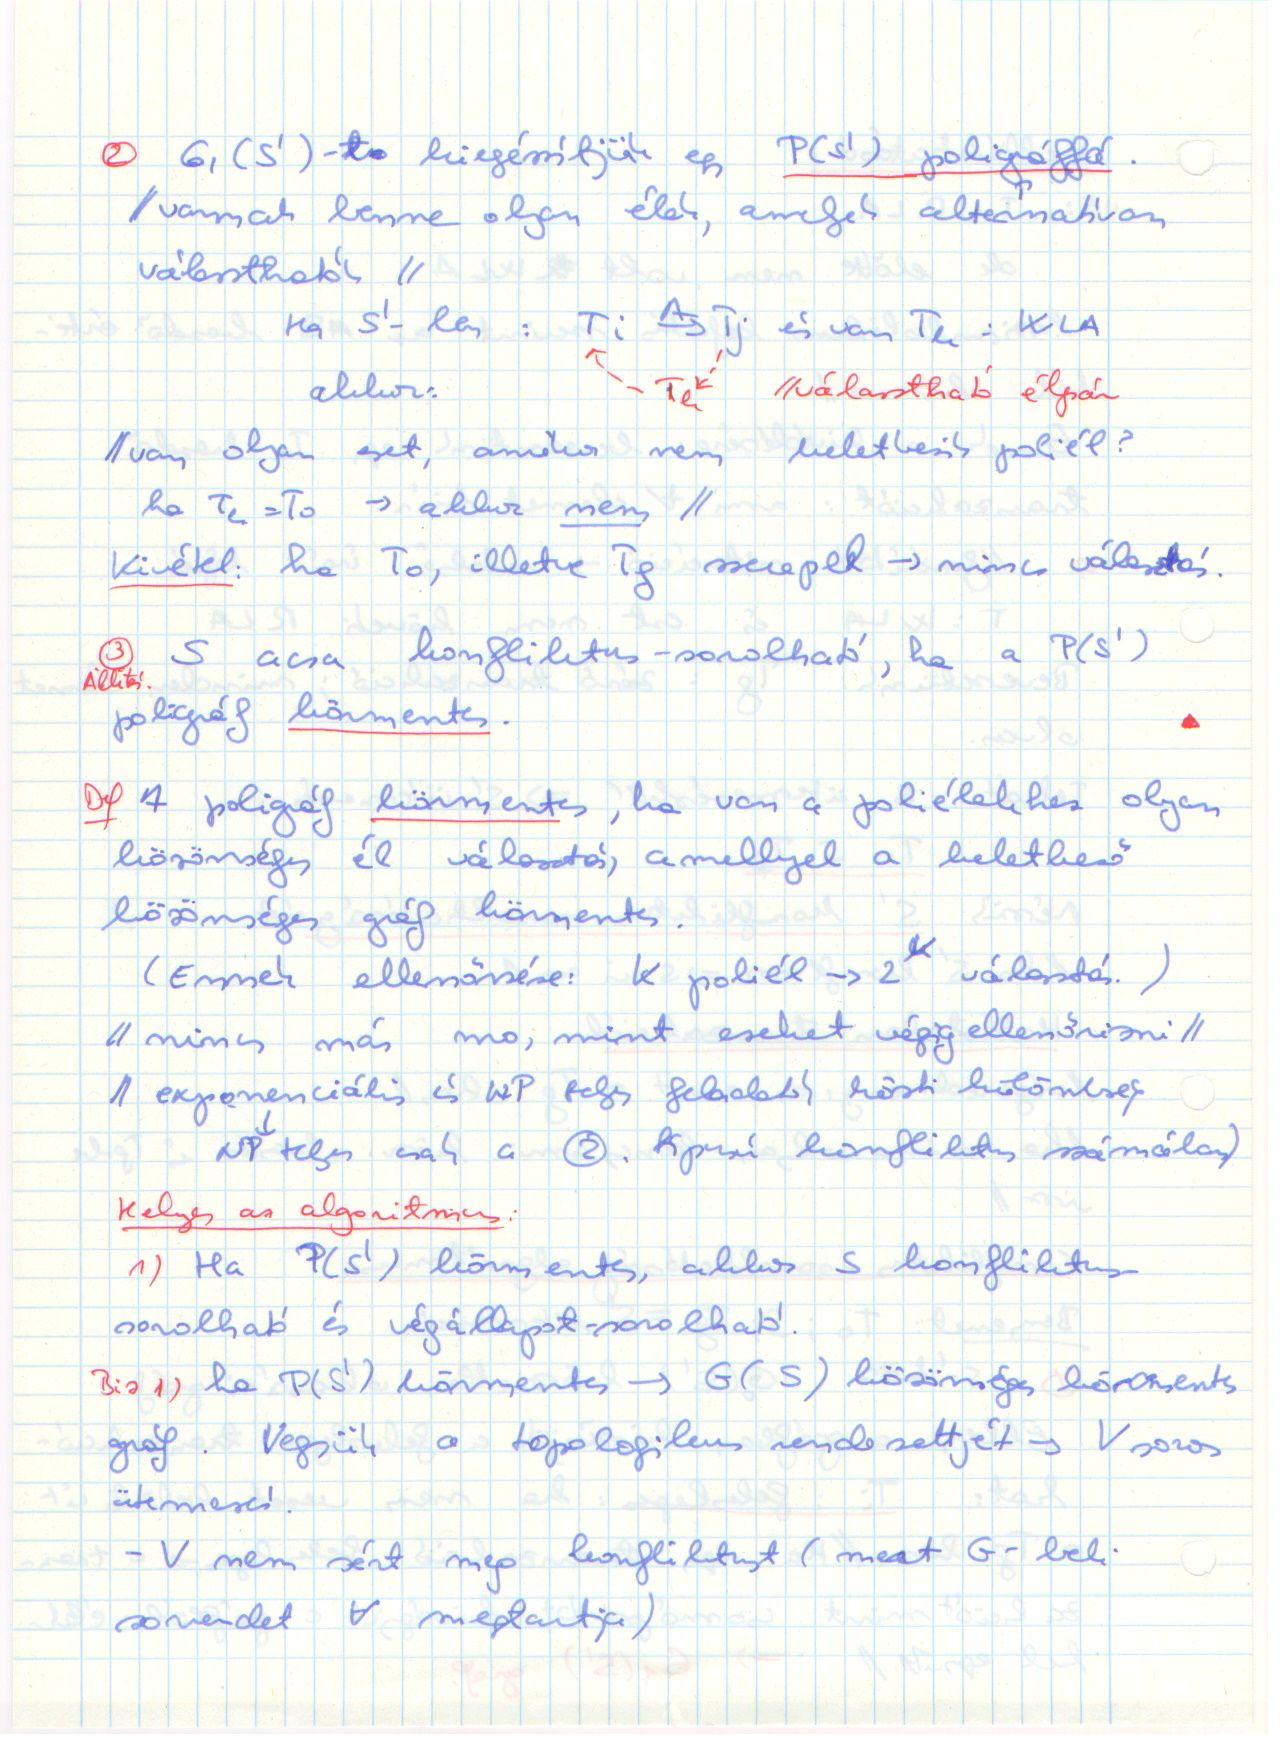 ② G₁(S')-t kiegészítjük egy P(S') poligráffá.
// vannak benne olyan élek, amelyek alternatívan
választhatók //
Ha S'-ben : Ti →A Tj és van Tk : WLA
akkor: Tk // választható élpár
// van olyan eset, amikor nem keletkezik poliél?
ha Tk = T0 → akkor nem //
Kivétel: ha T0, illetve Tg szerepel → nincs választás.
③ S acsa konfliktus-sorolható, ha a P(S')
Állítás.
poligráf körmentes.
Df A poligráf körmentes, ha van a poliélekhez olyan
közönséges él választás, amellyel a keletkező
közönséges gráf körmentes.
(Ennek ellenőrzése: K poliél → 2^K választás.)
// nincs más mo, mint eseket végigellenőrizni //
// exponenciális és NP teljes feladatok közti különbség
NP teljes csak a ②. típusú konfliktus számában)
Helyes az algoritmus:
1) Ha P(S') körmentes, akkor S konfliktus
sorolható és végállapot-sorolható.
Biz 1) ha P(S') körmentes → G(S) közönséges körmentes
gráf. Vegyük a topologikus rendezettjét → V soros
ütemezés.
- V nem sért meg konfliktust (mert G-beli
sorrendet V megtartja)